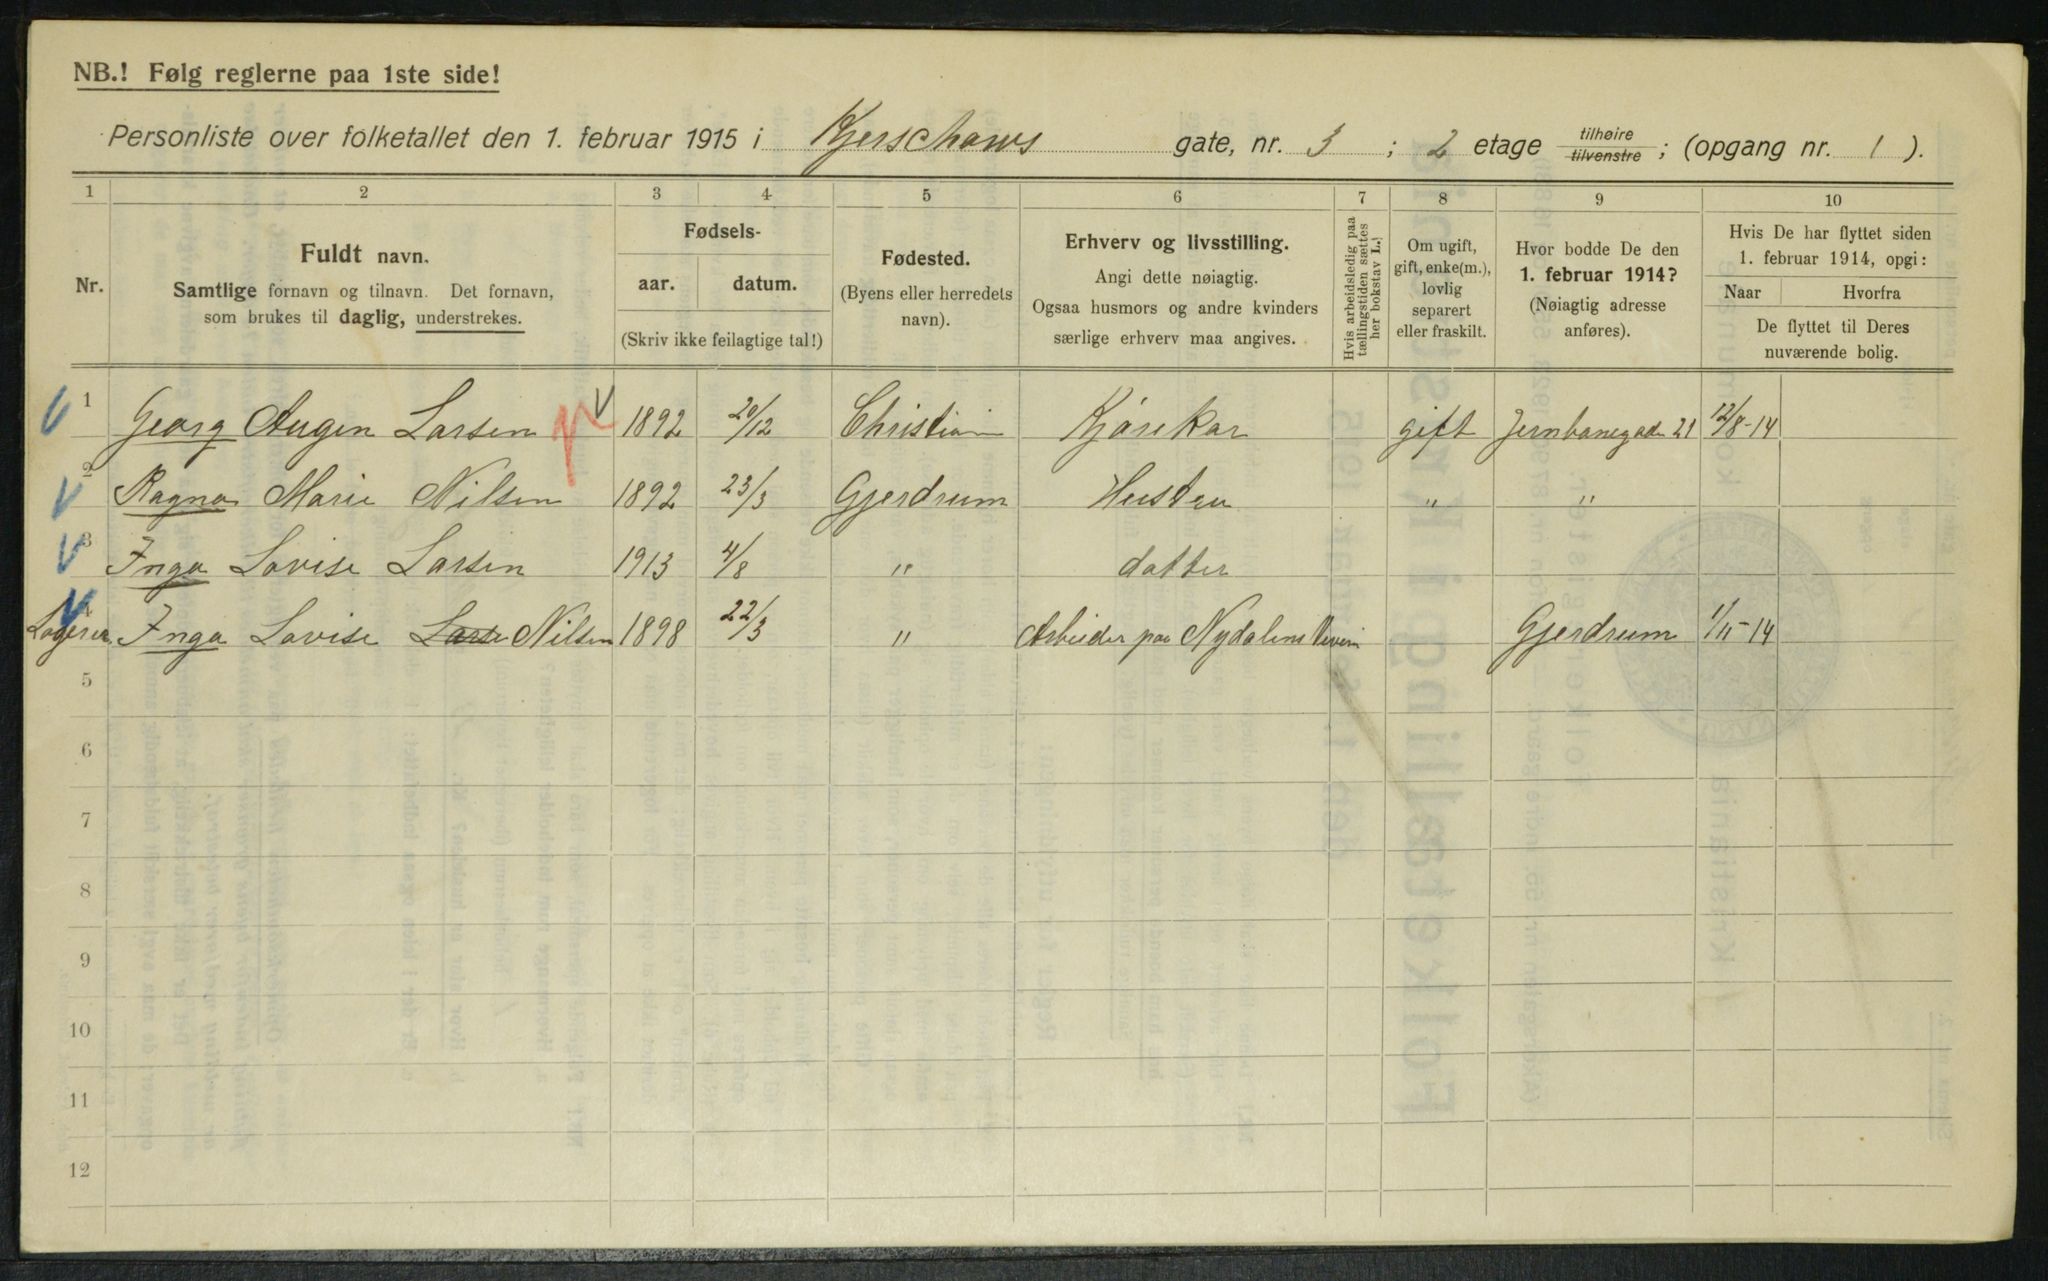 NB.! Følg reglerne paa 1ste side!
Personliste over folketallet den 1. februar 1915 i Kjerschows gate, nr. 3 ; 2 etage tilhøire tilvenstre ; (opgang nr. 1 ).
1 2 3 4 5 6 7 8 9 10
Nr.
Fuldt navn.
Samtlige fornavn og tilnavn. Det fornavn,
som brukes til daglig, understrekes.
Fødsels-
aar. datum.
(Skriv ikke feilagtige tal!)
Fødested.
(Byens eller herredets
navn).
Erhverv og livsstilling.
Angi dette nøiagtig.
Ogsaa husmors og andre kvinders
særlige erhverv maa angives.
Hvis arbeidsledig paa
tællingstiden sættes
her bokstav L.
Om ugift,
gift, enke(m.),
lovlig
separert
eller fraskilt.
Hvor bodde De den
1. februar 1914?
(Nøiagtig adresse
anføres).
Hvis De har flyttet siden
1. februar 1914, opgi:
Naar Hvorfra
De flyttet til Deres
nuværende bolig.
1 Georg Augen Larsen 1892 20/12 Christiania Kjørekar gift Jernbanegade 21 12/8-14
2 Ragna Marie Nilsen 1892 23/3 Gjerdrum Hustru " "
3 Inga Lovise Larsen 1913 4/8 " datter
4 Logerer Inga Lovise Larse Nilsen 1898 22/3 " Arbeider paa Nydalens Veveri Gjerdrum 1/11-14
5
6
7
8
9
10
11
12